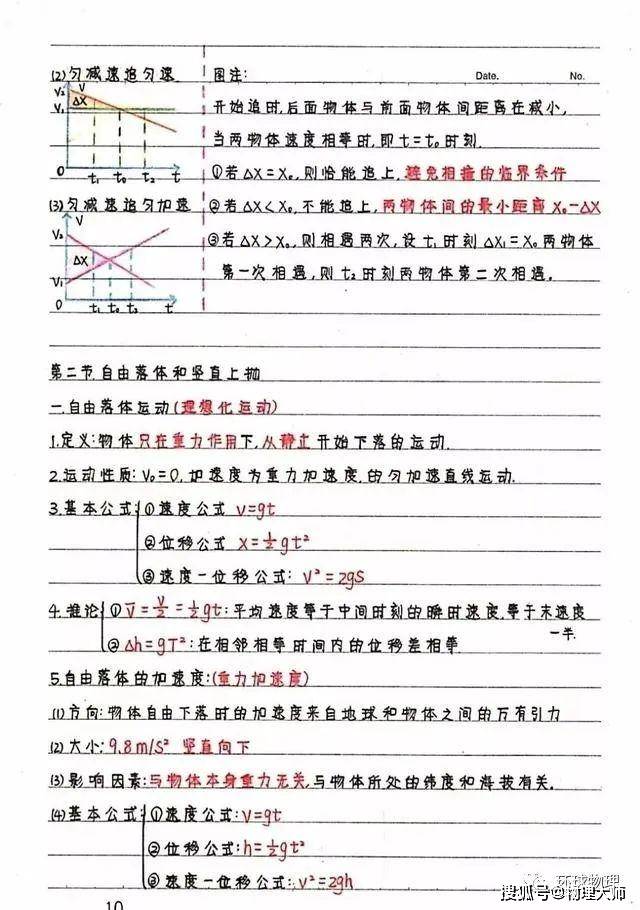 (2)匀减速追匀速
V₂ V
ΔX
V₁
0 t₁ t₀ t₂ t
(3)匀减速追匀加速
V
V₂
ΔX
V₁
0 t₁ t₀ t₂ t
图注: Date. No.
开始追时,后面物体与前面物体间距离在减小,
当两物体速度相等时,即t=t₀时刻
①若ΔX=X₀,则恰能追上,避免相撞的临界条件
②若ΔX<X₀,不能追上,两物体间的最小距离X₀-ΔX
③若ΔX>X₀,则相遇两次,设t₁时刻ΔX₁=X₀两物体
第一次相遇,则t₂时刻两物体第二次相遇。
第二节.自由落体和坚直上抛
一.自由落体运动(理想化运动)
1.定义:物体只在重力作用下,从静止开始下落的运动.
2.运动性质:V₀=0,加速度为重力加速度.的匀加速直线运动.
3.基本公式:①速度公式 v=gt
②位移公式 x=½gt²
③速度一位移公式: V²=2gS
4.推论:①V̅=V/2=½gt:平均速度等于中间时刻的瞬时速度.等于末速度
一半.
②Δh=gT²:在相邻相等时间内的位移差相等
5.自由落体的加速度:(重力加速度)
(1)方向:物体自由下落时的加速度来自地球和物体之间的万有引力
(2)大小:9.8m/s² 坚直向下
(3)影响因素:与物体本身重力无关,与物体所处的纬度和海拔有关.
(4)基本公式:①速度公式:v=gt
②位移公式:h=½gt²
③速度一位移公式:v²=2gh
环球物理
搜狐号@物理大师
10